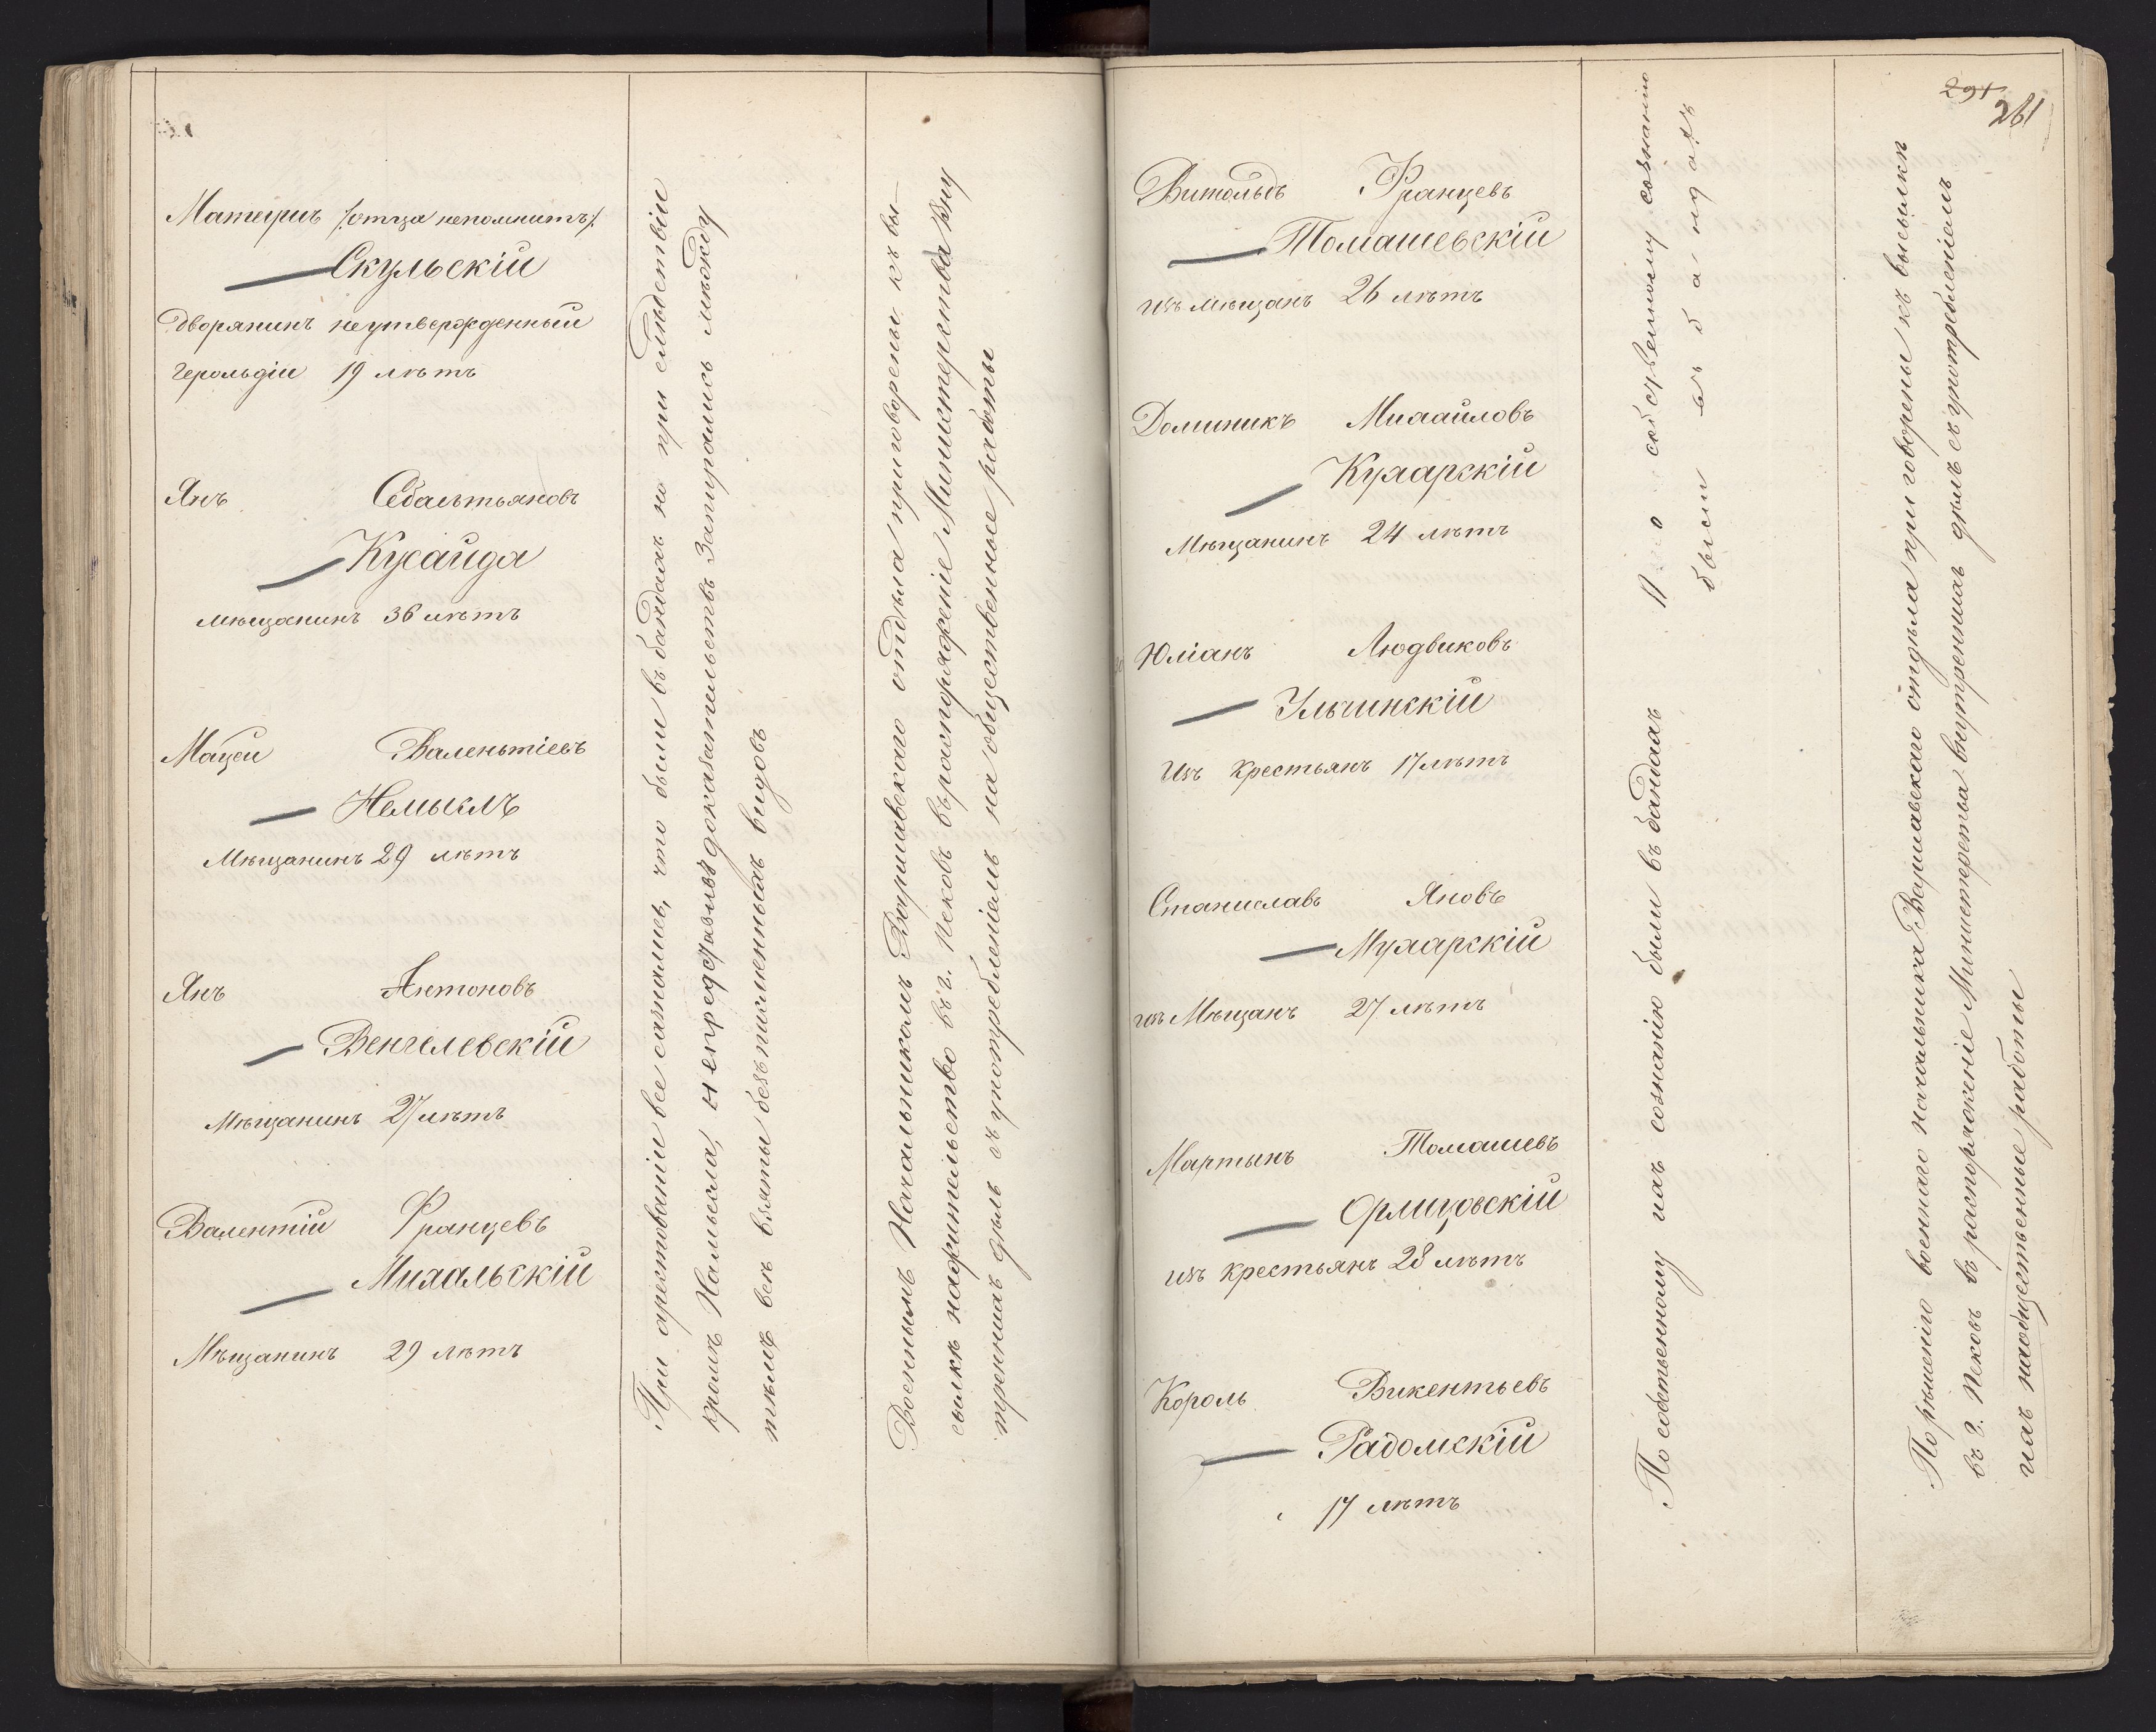 Матеушъ /:отца непомнитъ:/
Скульскій
Дворянинъ неутвержденный
Герольдіи 19 лѣтъ
Янъ Себастьяновъ
Кусайда
мѣщанинъ 36 лѣтъ
Мацеи Валентіевъ
Немыслъ
Мѣщанинъ 29 лѣтъ
Янъ Антоновъ
Венгелевскій
Мѣщанинъ 27 лѣтъ
Валентій Францевъ
Михальскій
Мѣщанинъ 29 лѣтъ
При арестованіи все сазнались, что были въ бандахъ но при слѣдствіи
кромѣ непредставивъ доказательствъ запирались между
тѣмъ всѣ взяты безъ письменныхъ видовъ
Военнымъ Начальникомъ Варшавскаго отдѣла приговорены къ вы-
сылкѣ нажительство въ г. Псковъ въ распоряженіе Министерства Вну
треннихъ дѣлъ съ употребленіемъ на общественные работы
291
261
Витольдъ Францевъ
Томашевскій
Изъ мѣщанъ 26 лѣтъ
Доминикъ Михайловъ
Кухарскій
Мѣщанинъ 24 лѣтъ
Юліанъ Людвиковъ
Ульчинскій
Изъ крестьянъ 17 лѣтъ
Станиславъ Яновъ
Мухарскій
изъ Мѣщанъ 27 лѣтъ
Мартынъ Томашевъ
Орлицовскій
изъ крестьянъ 28 лѣтъ
Король Викентьевъ
Радомскій
17 лѣтъ
По собственному сознанію
были въ бандахъ
По собственному ихъ сознанію были въ бандахъ
По рѣшенію военнаго начальника Варшавскаго отдѣла приговорены къ высылкѣ
въ г. Псковъ въ распоряженіе Министерства внутреннихъ дѣлъ съ употребленіемъ
ихъ наобщественные работы